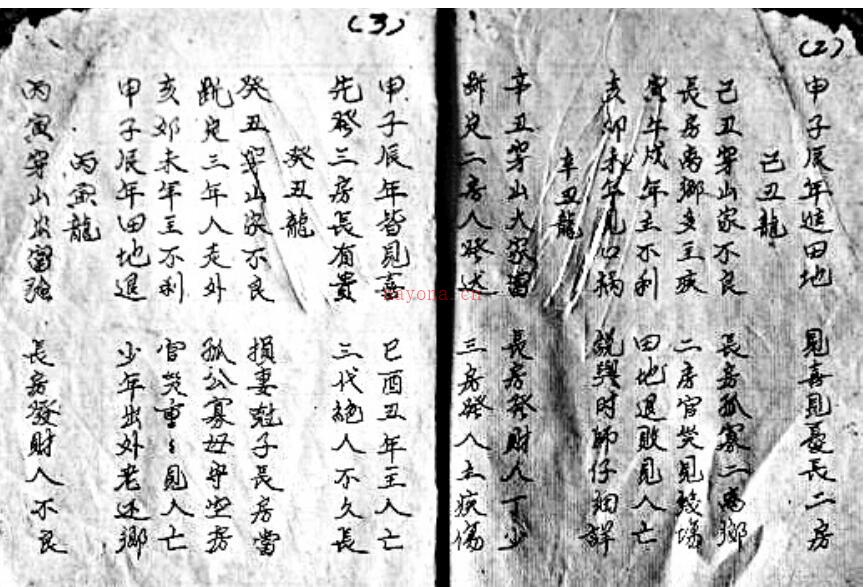 (2)
甲子辰年進田地 見喜見憂長二房
己丑龍
己丑穿山家不良 長房孤寡二离鄉
長房离鄉多主疾 二房官災見
寅午戌年主不利 田地退敗見人亡
亥卯未年見口禍 説與时師仔細詳
辛丑龍
辛丑穿山大家富 長房發財人丁少
斷定二房人發达 三房發人主疾傷
(3)
甲子辰年皆見喜 巳酉丑年主人亡
先發三房長有貴 三代絕人不久長
癸丑龍
癸丑穿山家不良 損妻尅子長房當
斷定三年人走外 孤公寡母守空房
亥卯未年主不利 官災重々見人亡
甲子辰年田地退 少年出外老还鄉
丙寅龍
丙寅穿山出富強 長房發財人不良
nayona.cn